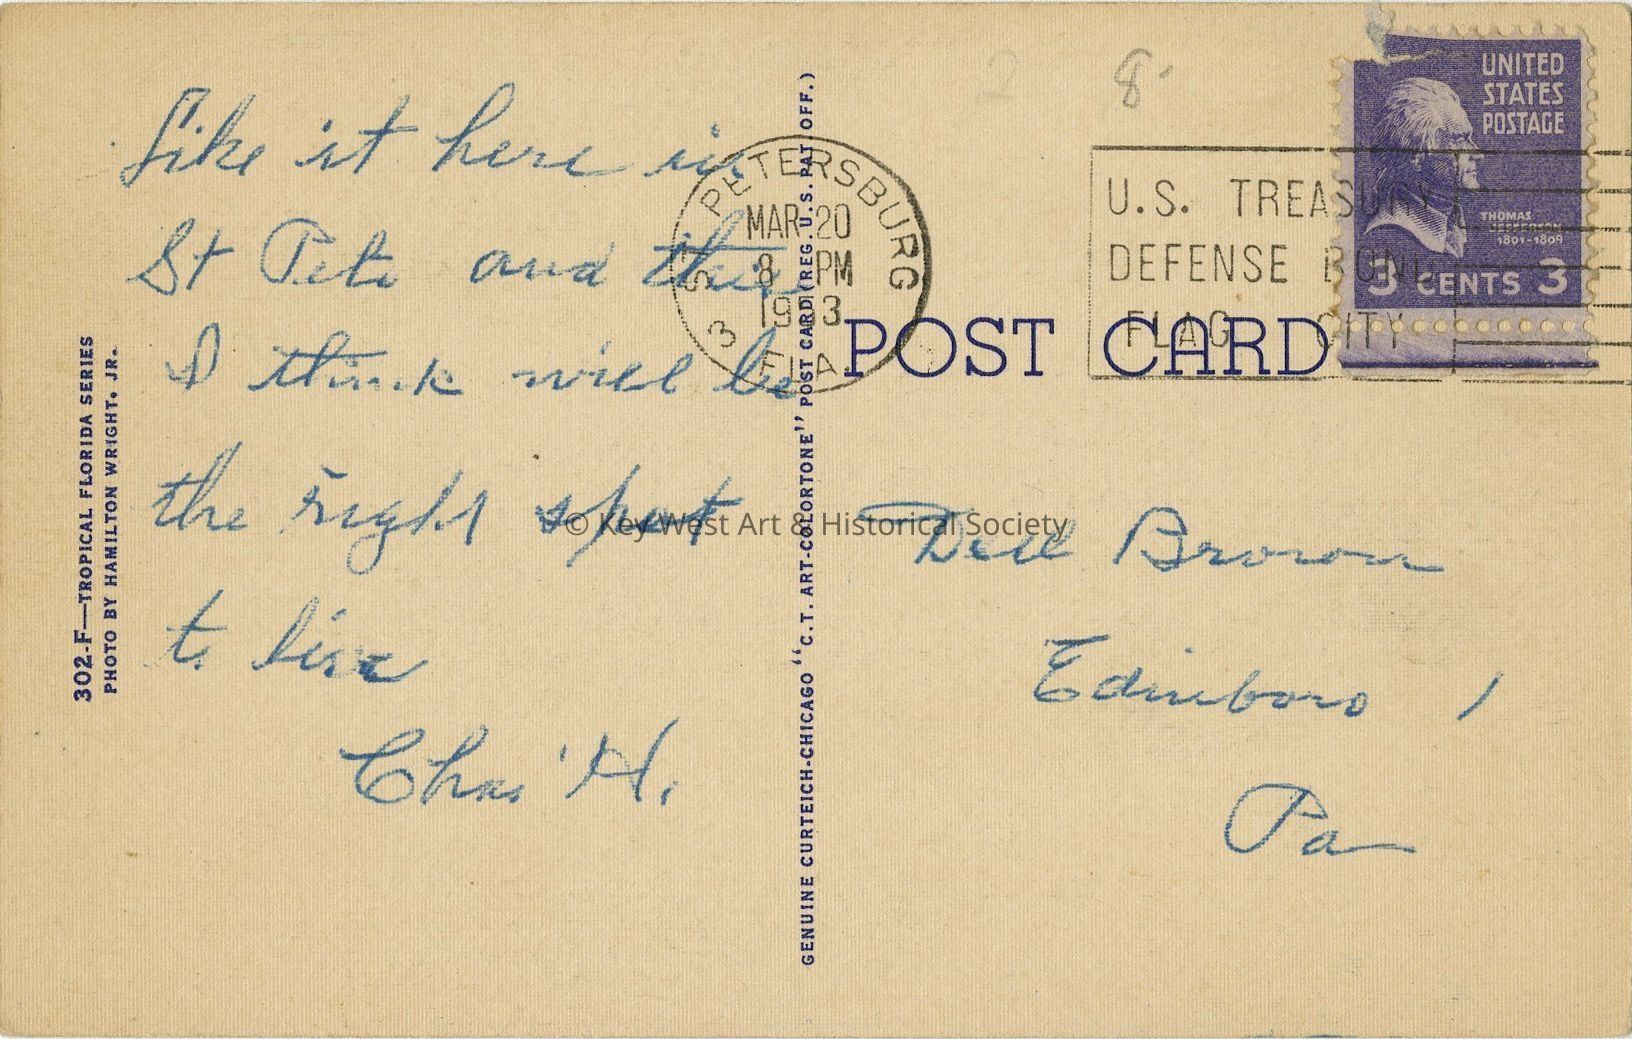 Like it here in
St Pete and this
I think will be
the right spot
to live
Chas. H.
302-F—TROPICAL FLORIDA SERIES
PHOTO BY HAMILTON WRIGHT, JR.
GENUINE CURTEICH-CHICAGO "C.T. ART-COLORTONE" POST CARD (REG. U.S. PAT. OFF.)
2 8
ST. PETERSBURG
MAR 20
8 PM
1953
3 FLA
U.S. TREASURY
DEFENSE BOND
FLAG CITY
UNITED
STATES
POSTAGE
THOMAS
JEFFERSON
1801-1809
3 CENTS 3
POST CARD
© Key West Art & Historical Society
Dell Brown
Edinboro,
Pa